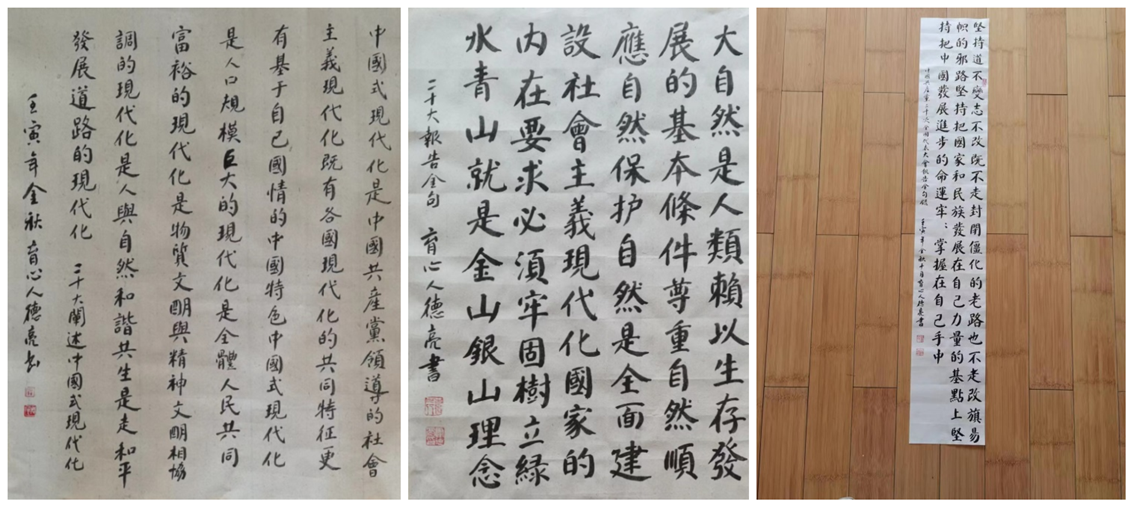 中國式現代化是中國共産黨領導的社會
主義現代化既有各國現代化的共同特征更
有基于自己國情的中國特色中國式現代化
是人口規模巨大的現代化是全體人民共同
富裕的現代化是物質文明與精神文明相協
調的現代化是人與自然和諧共生是走和平
發展道路的現代化 二十大闡述中國式現代化
壬寅年金秋育心人德亮書
大自然是人類賴以生存發
展的基本條件尊重自然順
應自然保护自然是全面建
設社會主義現代化國家的
内在要求必須牢固樹立緑
水青山就是金山銀山理念
二十大報告金句 育心人德亮書
堅持道不變志不改既不走封閉僵化的老路也不走改旗易
帜的邪路堅持把國家和民族發展在自己力量的基點上堅
持把中國發展進步的命運牢牢掌握在自己手中
中國共産黨二十次全國代表大會報告金句録 壬寅年金秋十月育心人德亮書